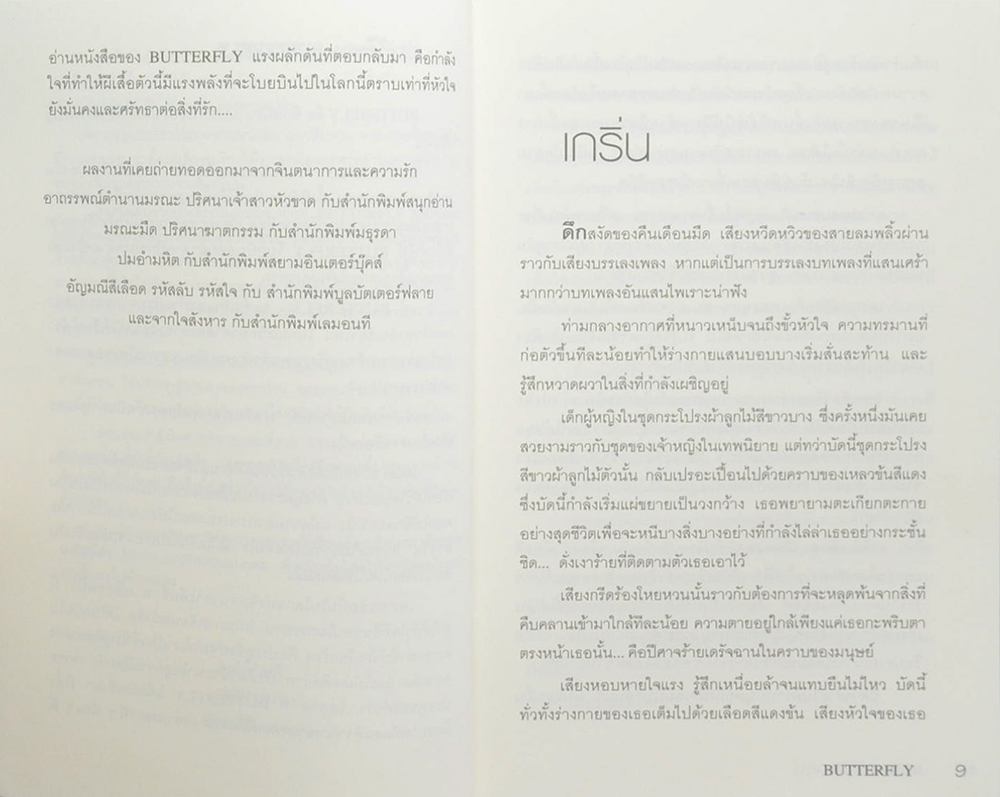 อ่านหนังสือของ BUTTERFLY แรงผลักดันที่ตอบกลับมา คือกำลัง
ใจที่ทำให้ผีเสื้อตัวนี้มีแรงพลังที่จะโบยบินไปในโลกนี้ตราบเท่าที่หัวใจ
ยังมั่นคงและศรัทธาต่อสิ่งที่รัก....
ผลงานที่เคยถ่ายทอดออกมาจากจินตนาการและความรัก
อาถรรพณ์ตำนานมรณะ ปริศนาเจ้าสาวหัวขาด กับสำนักพิมพ์สนุกอ่าน
มรณะมืด ปริศนาฆาตกรรม กับสำนักพิมพ์มธุรดา
ปมอำมหิต กับสำนักพิมพ์สยามอินเตอร์บุ๊คส์
อัญมณีสีเลือด รหัสลับ รหัสใจ กับ สำนักพิมพ์บูลบัตเตอร์ฟลาย
และจากใจสังหาร กับสำนักพิมพ์เลมอนที
เกริ่น
ดึกสงัดของคืนเดือนมืด เสียงหวีดหวิวของสายลมพลิ้วผ่าน
ราวกับเสียงบรรเลงเพลง หากแต่เป็นการบรรเลงบทเพลงที่แสนเศร้า
มากกว่าบทเพลงอันแสนไพเราะน่าฟัง
ท่ามกลางอากาศที่หนาวเหน็บจนถึงขั้วหัวใจ ความทรมานที่
ก่อตัวขึ้นทีละน้อยทำให้ร่างกายแสนบอบบางเริ่มสั่นสะท้าน และ
รู้สึกหวาดผวาในสิ่งที่กำลังเผชิญอยู่
เด็กผู้หญิงในชุดกระโปรงผ้าลูกไม้สีขาวบาง ซึ่งครั้งหนึ่งมันเคย
สวยงามราวกับชุดของเจ้าหญิงในเทพนิยาย แต่ทว่าบัดนี้ชุดกระโปรง
สีขาวผ้าลูกไม้ตัวนั้น กลับเปรอะเปื้อนไปด้วยคราบของเหลวข้นสีแดง
ซึ่งบัดนี้กำลังเริ่มแผ่ขยายเป็นวงกว้าง เธอพยายามตะเกียกตะกาย
อย่างสุดชีวิตเพื่อจะหนีบางสิ่งบางอย่างที่กำลังไล่ล่าเธออย่างกระชั้น
ชิด... ดั่งเงาร้ายที่ติดตามตัวเธอเอาไว้
เสียงกรีดร้องโหยหวนนั้นราวกับต้องการที่จะหลุดพ้นจากสิ่งที่
คืบคลานเข้ามาใกล้ทีละน้อย ความตายอยู่ใกล้เพียงแค่เธอกะพริบตา
ตรงหน้าเธอนั้น... คือปีศาจร้ายเดรัจฉานในคราบของมนุษย์
เสียงหอบหายใจแรง รู้สึกเหนื่อยล้าจนแทบยืนไม่ไหว บัดนี้
ทั่วทั้งร่างกายของเธอเต็มไปด้วยเลือดสีแดงข้น เสียงหัวใจของเธอ
BUTTERFLY 9